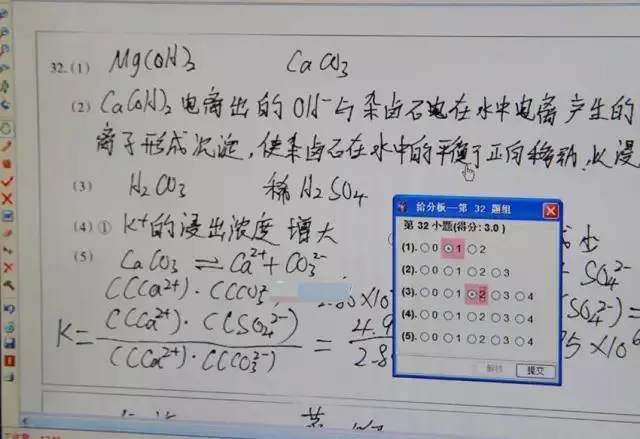 32.(1) Mg(OH)2 CaCO3
(2) Ca(OH)2电离出的OH-与杂卤石电在水中电离产生的
离子形成沉淀,使杂卤石在水中的平衡于正向移动,以浸
(3) H2CO3 稀H2SO4
(4)① K+的浸出浓度 增大
(5) CaCO3 ⇌ Ca2+ + CO32- + SO42-
C(Ca2+)·C(CO32-
K= C(Ca2+)·C(SO42-) / C(Ca2+)·C(CO32-) = 4.9 / 2.8
给分板—第 32 题组
第 32 小题(得分: 3.0 )
(1). 0 1 2
(2). 0 1 2 3
(3). 0 1 2 3 4
(4). 0 1 2 3 4
(5). 0 1 2 3 4
解锁 提交